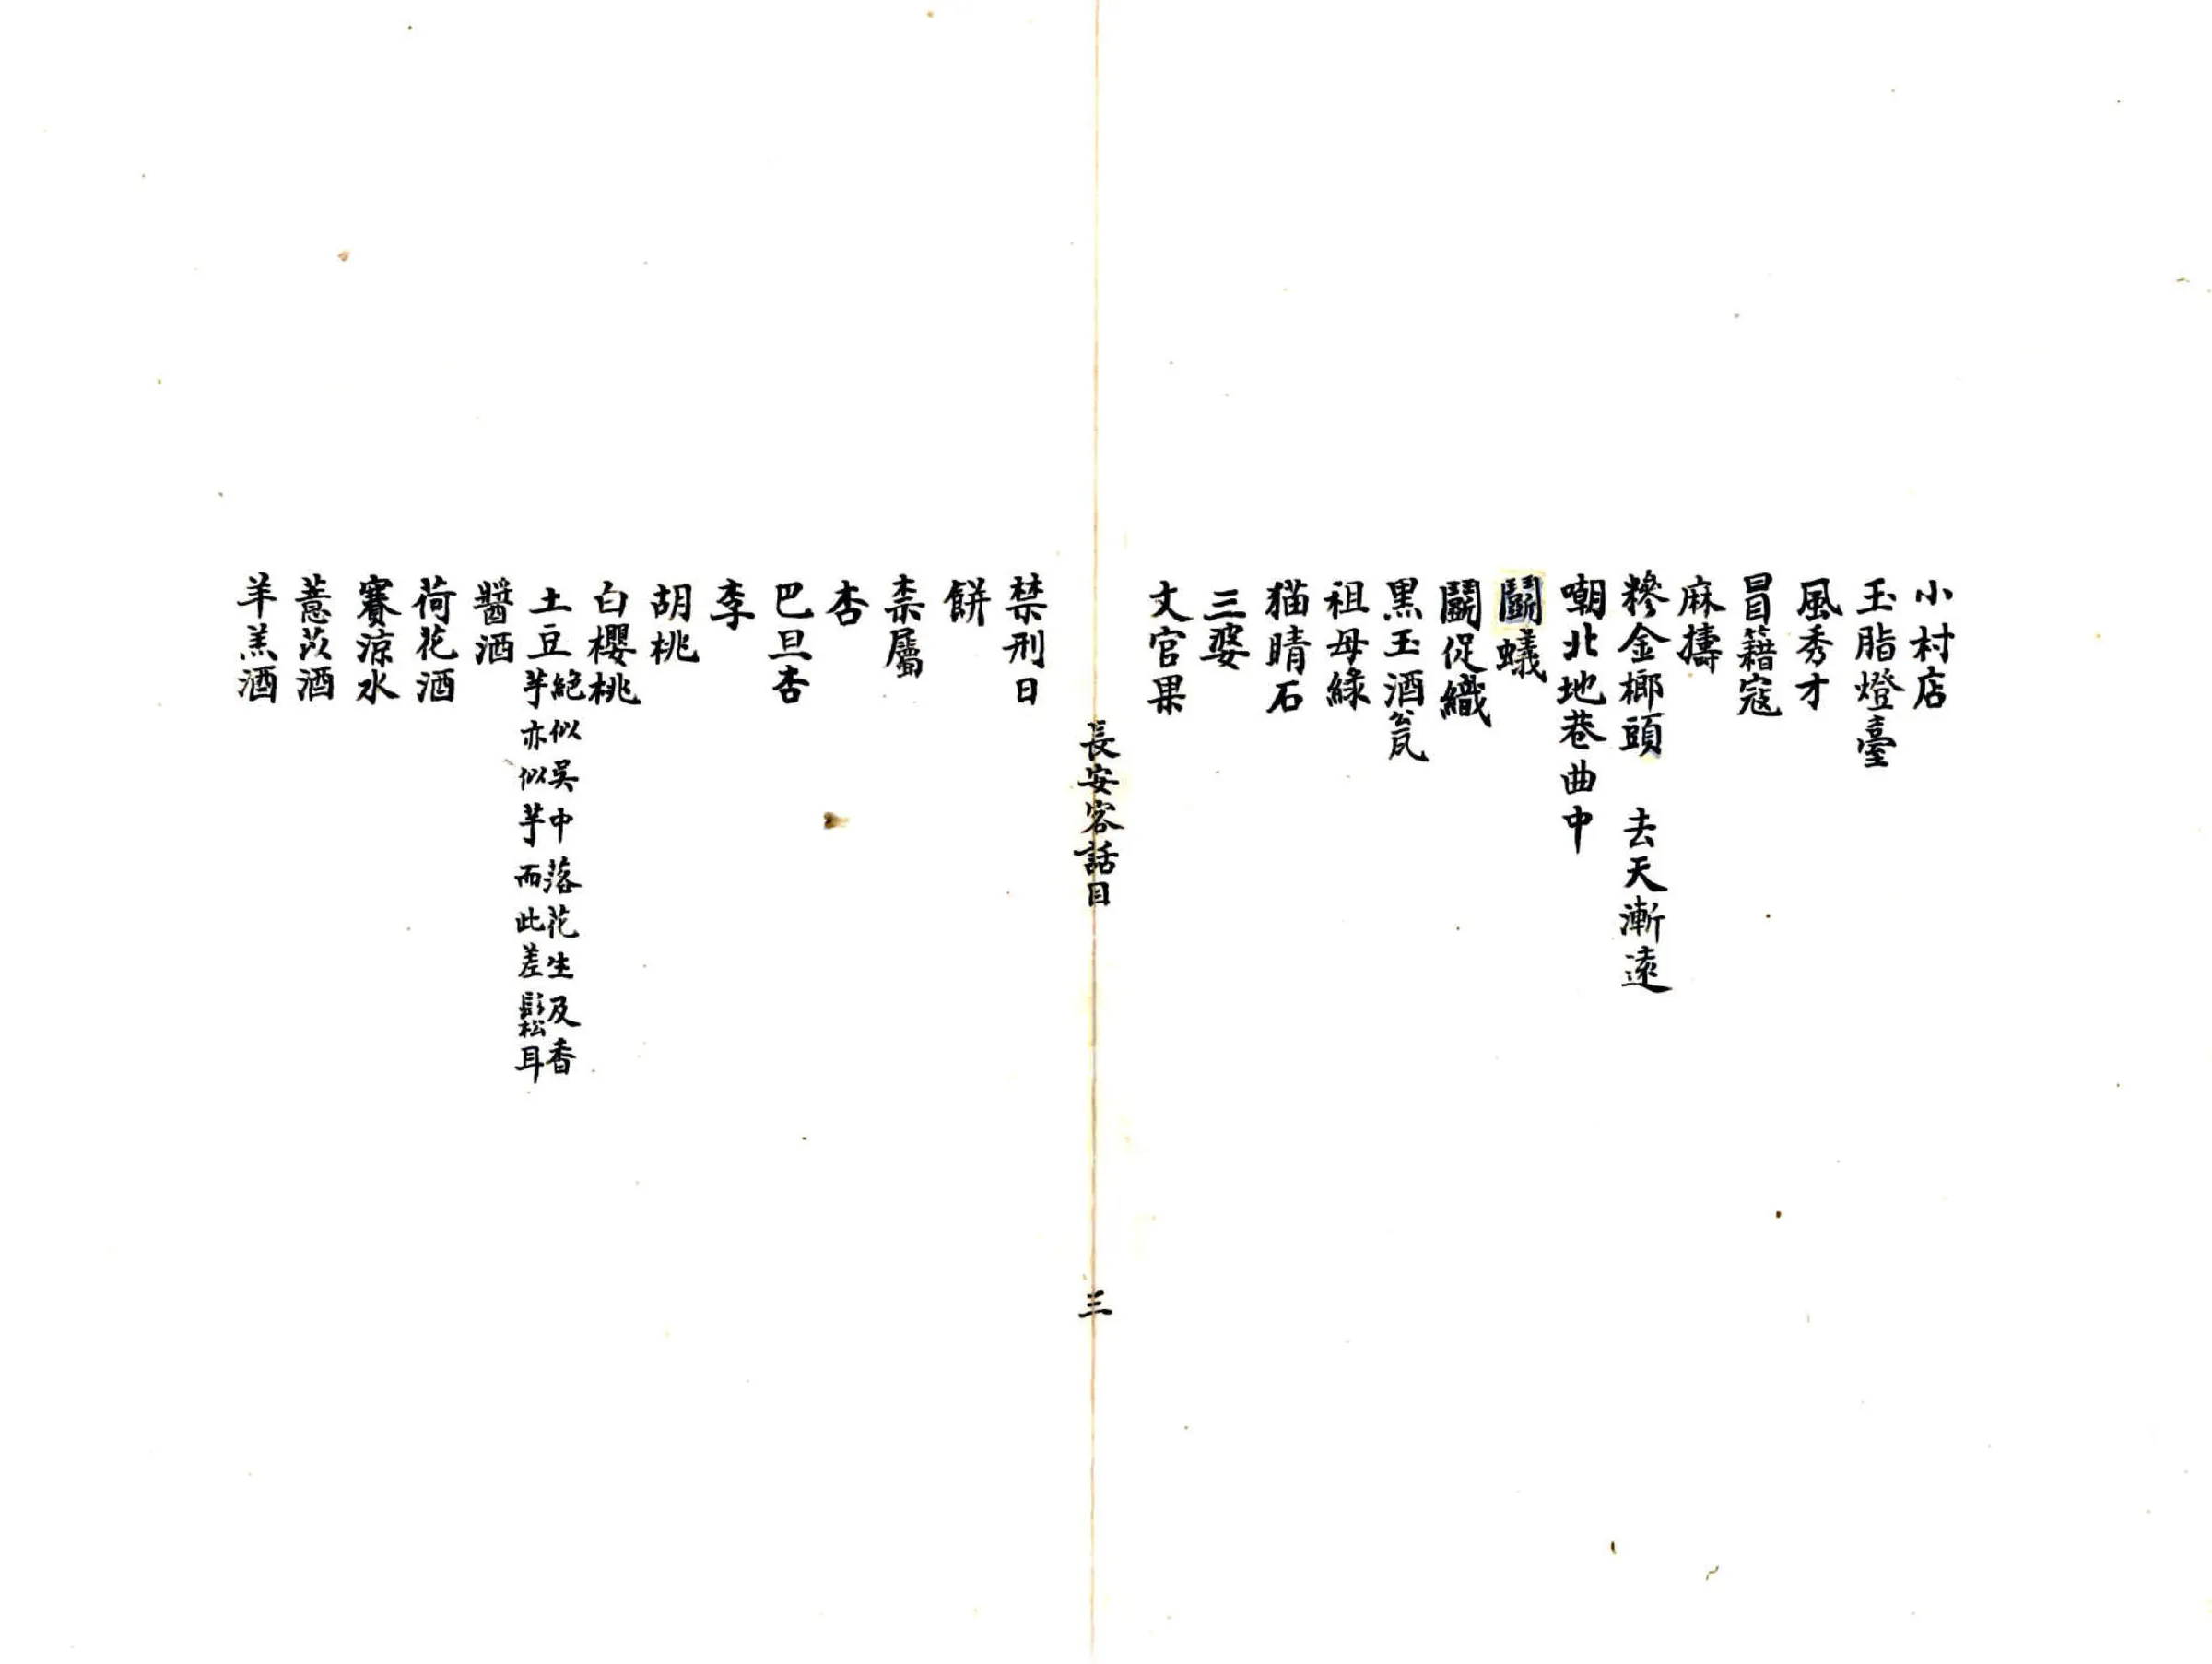 小村店
玉脂燈臺
風秀才
冒籍寇
麻擣
糝金榔頭　去天漸遠
嘲北地巷曲中
鬭蟻
鬭促織
黑玉酒瓮
祖母緑
猫睛石
三婆
文官果
長安客話目
三
禁刑日
餅
柰屬
杏
巴旦杏
李
胡桃
白櫻桃
土豆
絶似吳中落花生及香
芋亦似芋而此差鬆耳
醬酒
荷花酒
賽涼水
薏苡酒
羊羔酒